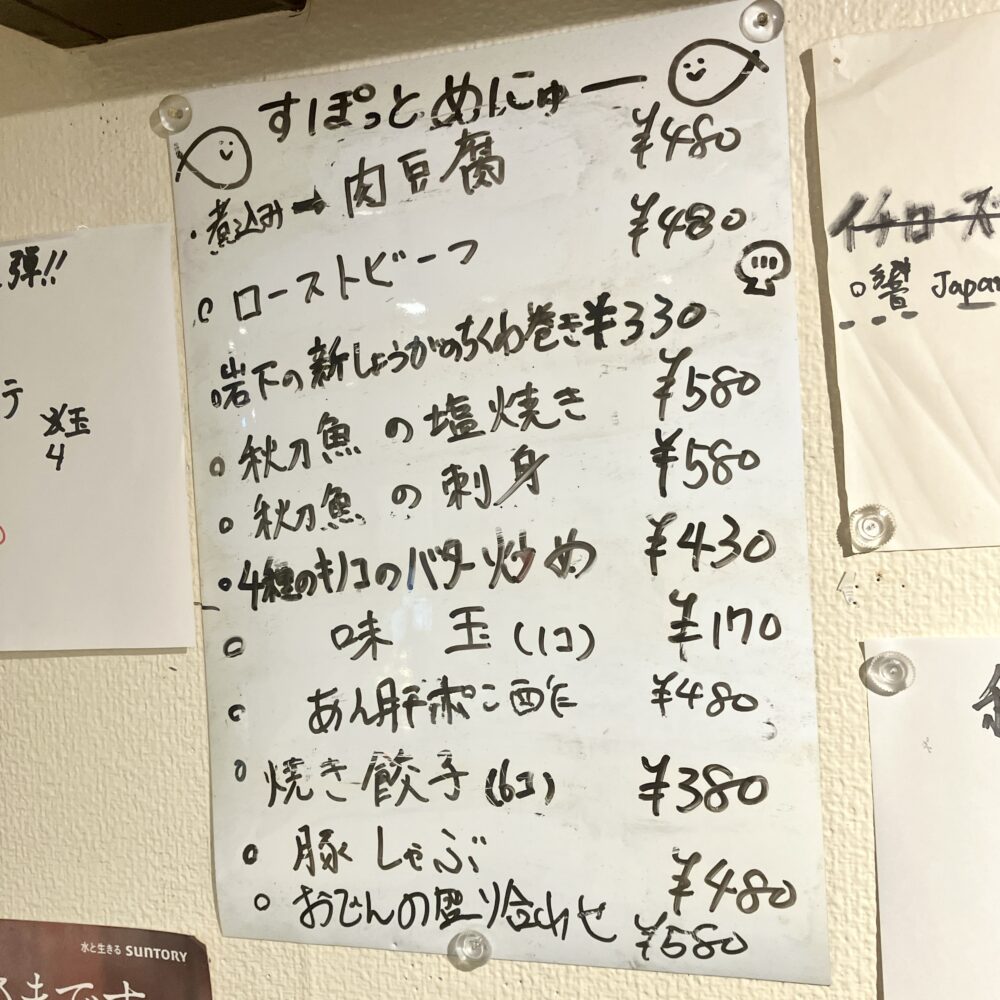 すぽっとめにゅー
・煮込み→肉豆腐 ¥480
○ローストビーフ ¥480
○岩下の新しょうがのちくわ巻き ¥330
○秋刀魚の塩焼き ¥580
○秋刀魚の刺身 ¥580
○4種のキノコのバター炒め ¥430
○味玉(1コ) ¥170
○あん肝ポン酢 ¥480
○焼き餃子(6コ) ¥380
○豚しゃぶ ¥480
○おでんの盛り合わせ ¥580
弾!!
テ
玉
4
イチローズ
○響 Japan
水と生きる SUNTORY
まです